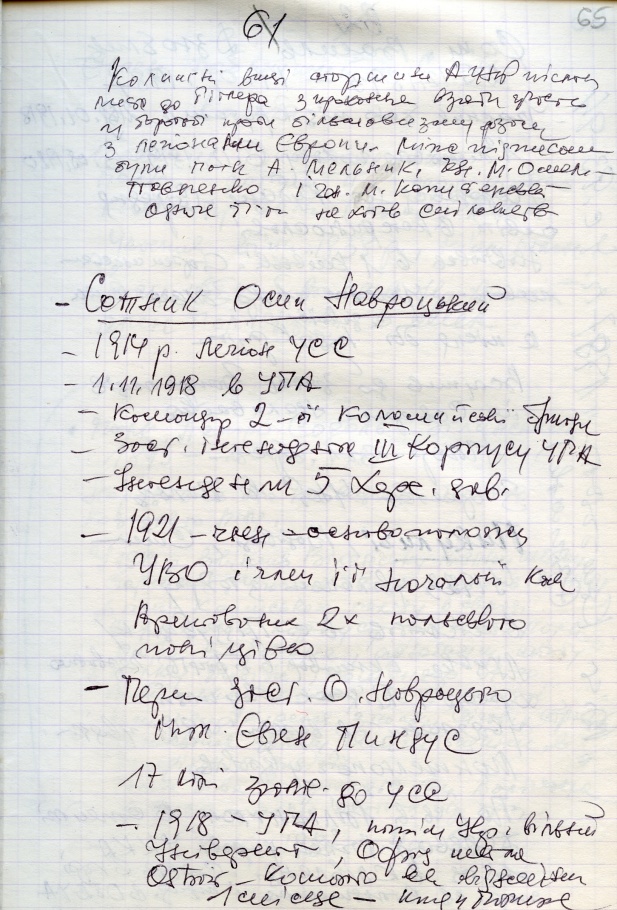 61
65
Колишні вищі старшини АУНР післали
листа до Гітлера з проханням взяти участь
у боротьбі проти більшовизму разом
з легіонами Європи. Між підписами
були полк А. Мельник, ген. М. Омеля-
Павленко і ген. М. Капустянський
Одначе Гітлер не хотів
- Сотник Осип Навроцький
- 1914 р. Легіон УСС
- 1.11.1918 в УГА
- Командир 2-ої Коломийської бригади
- Заст. інтенданта III Корпусу УГА
- Інтендант 5 Херс. див.
- 1921 - член - основоположник
УВО і член її начальної Ком
Арештований 2х польською
поліцією
- Перш заст. О. Навроцького
інж. Євген Пиндус
17 літ до УСС
- 1918 - УГА, потім Укр. вільний
Університет,